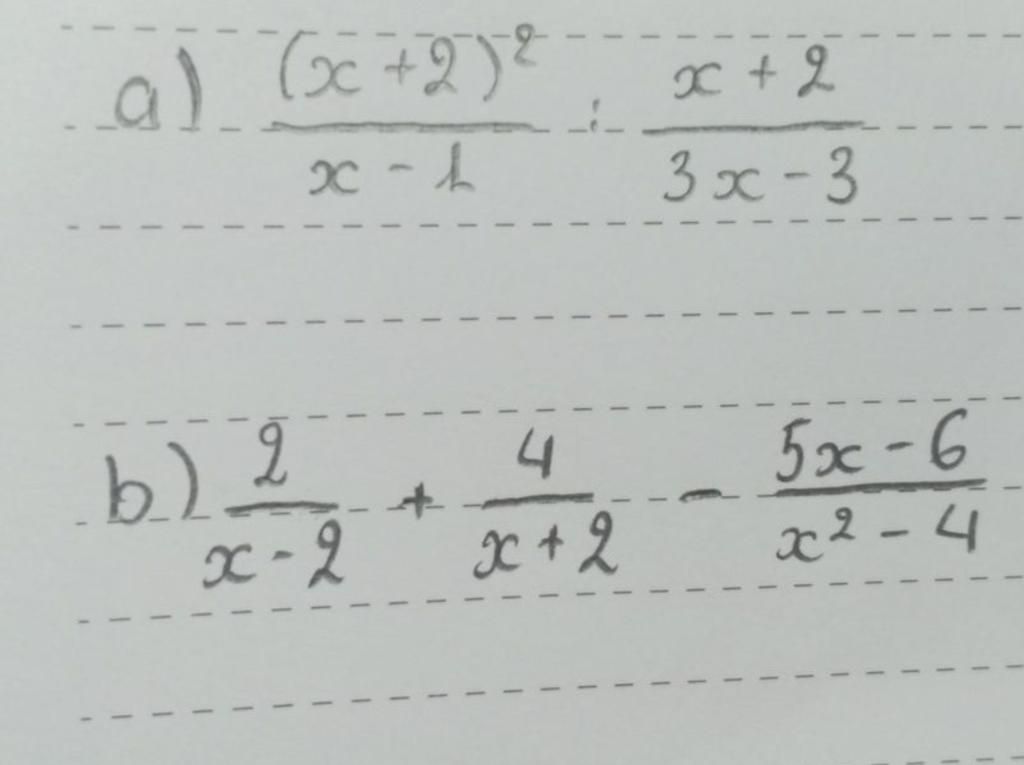 a) (x+2)²/(x-1) : (x+2)/(3x-3)
b) 2/(x-2) + 4/(x+2) - (5x-6)/(x²-4)